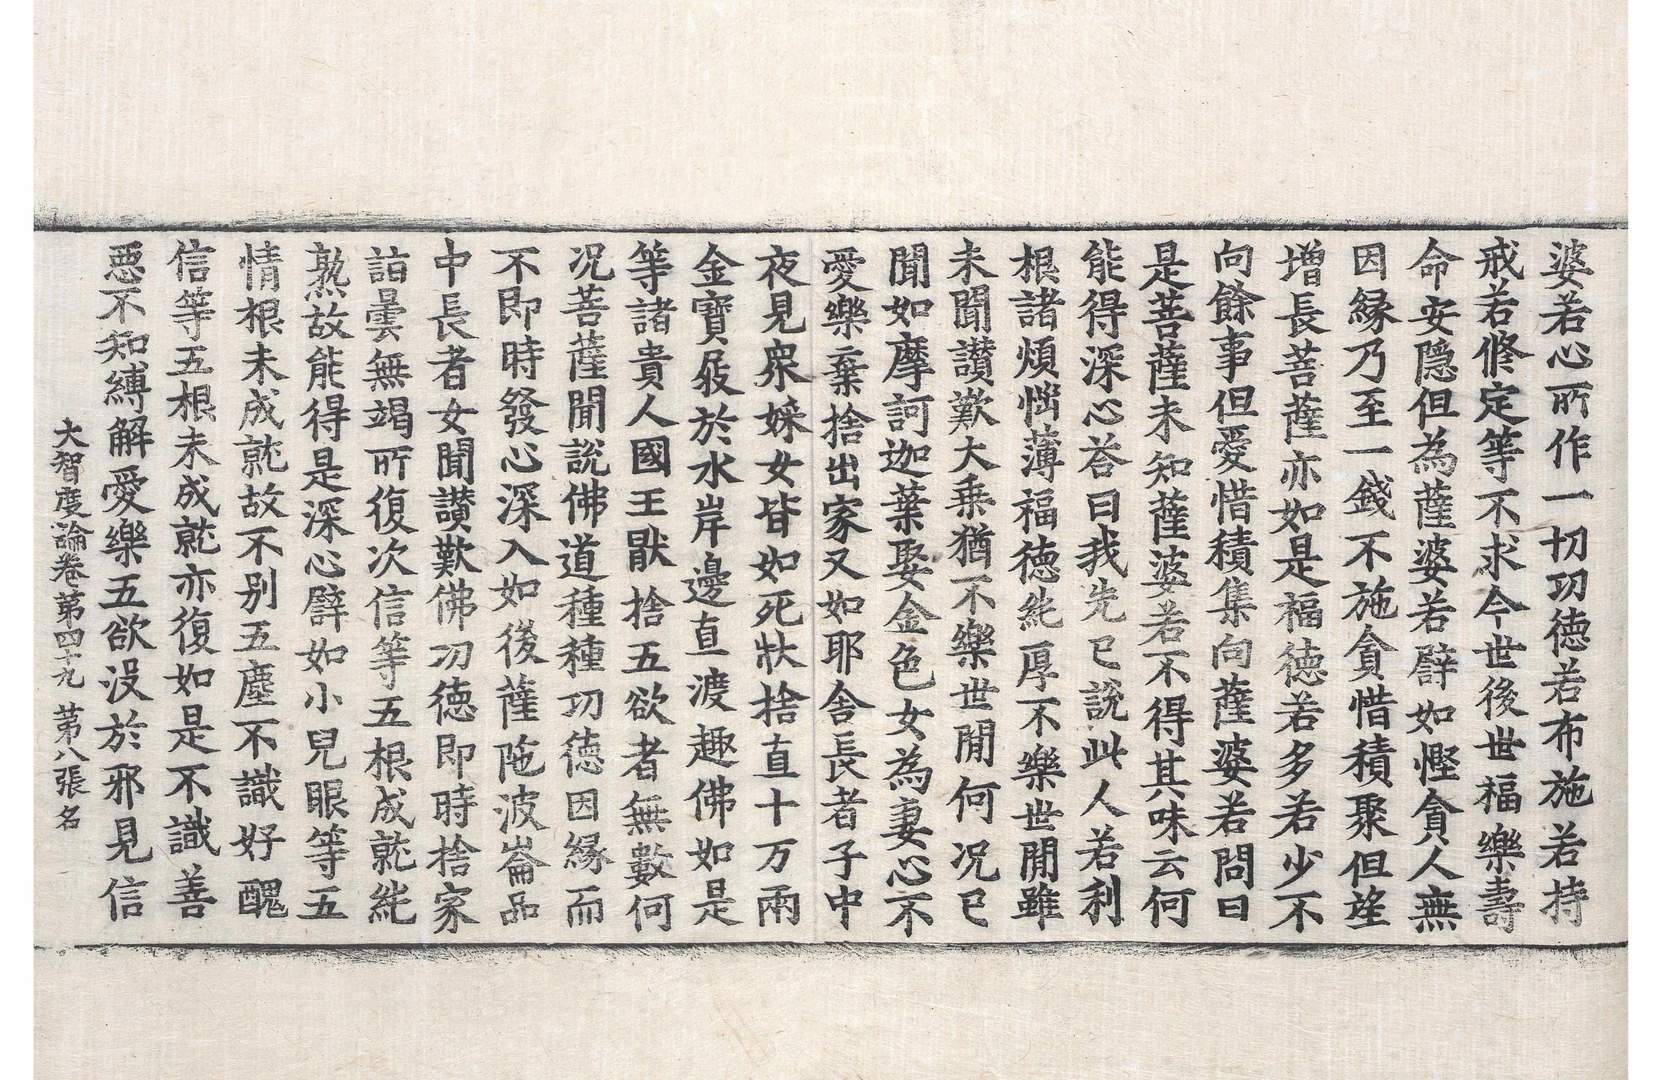 婆若心所作一切功德若布施若持
戒若修定等不求今世後世福樂壽
命安隱但為薩婆若譬如慳貪人無
因緣乃至一錢不施貪惜積聚但望
增長菩薩亦如是福德若多若少不
向餘事但愛惜積集向薩婆若問曰
是菩薩未知薩婆若不得其味云何
能得深心荅曰我先已說此人若利
根諸煩惱薄福德純厚不樂世閒雖
未聞讚歎大乘猶不樂世閒何况已
聞如摩訶迦葉娶金色女為妻心不
愛樂棄捨出家又如耶舍長者子中
夜見衆婇女皆如死狀捨直十万兩
金寶屐於水岸邊直渡趣佛如是
等諸貴人國王猒捨五欲者無數何
况菩薩聞說佛道種種功德因緣而
不即時發心深入如後薩陁波崙品
中長者女聞讃歎佛功德即時捨家
詣曇無竭所復次信等五根成就純
熟故能得是深心譬如小兒眼等五
情根未成就故不別五塵不識好醜
信等五根未成就亦復如是不識善
惡不知縛解愛樂五欲沒於邪見信
大智度論卷第四十九 第八張 名